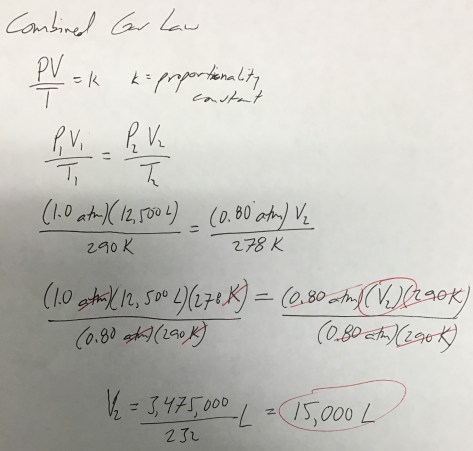 Combined Gas Law
PV/T = k k = proportionality constant
P₁V₁/T₁ = P₂V₂/T₂
(1.0 atm)(12,500 L)/290 K = (0.80 atm) V₂/278 K
(1.0 atm)(12,500 L)(278 K)/(0.80 atm)(290 K) = (0.80 atm)(V₂)(290 K)/(0.80 atm)(290 K)
V₂ = 3,475,000/232 L = 15,000 L